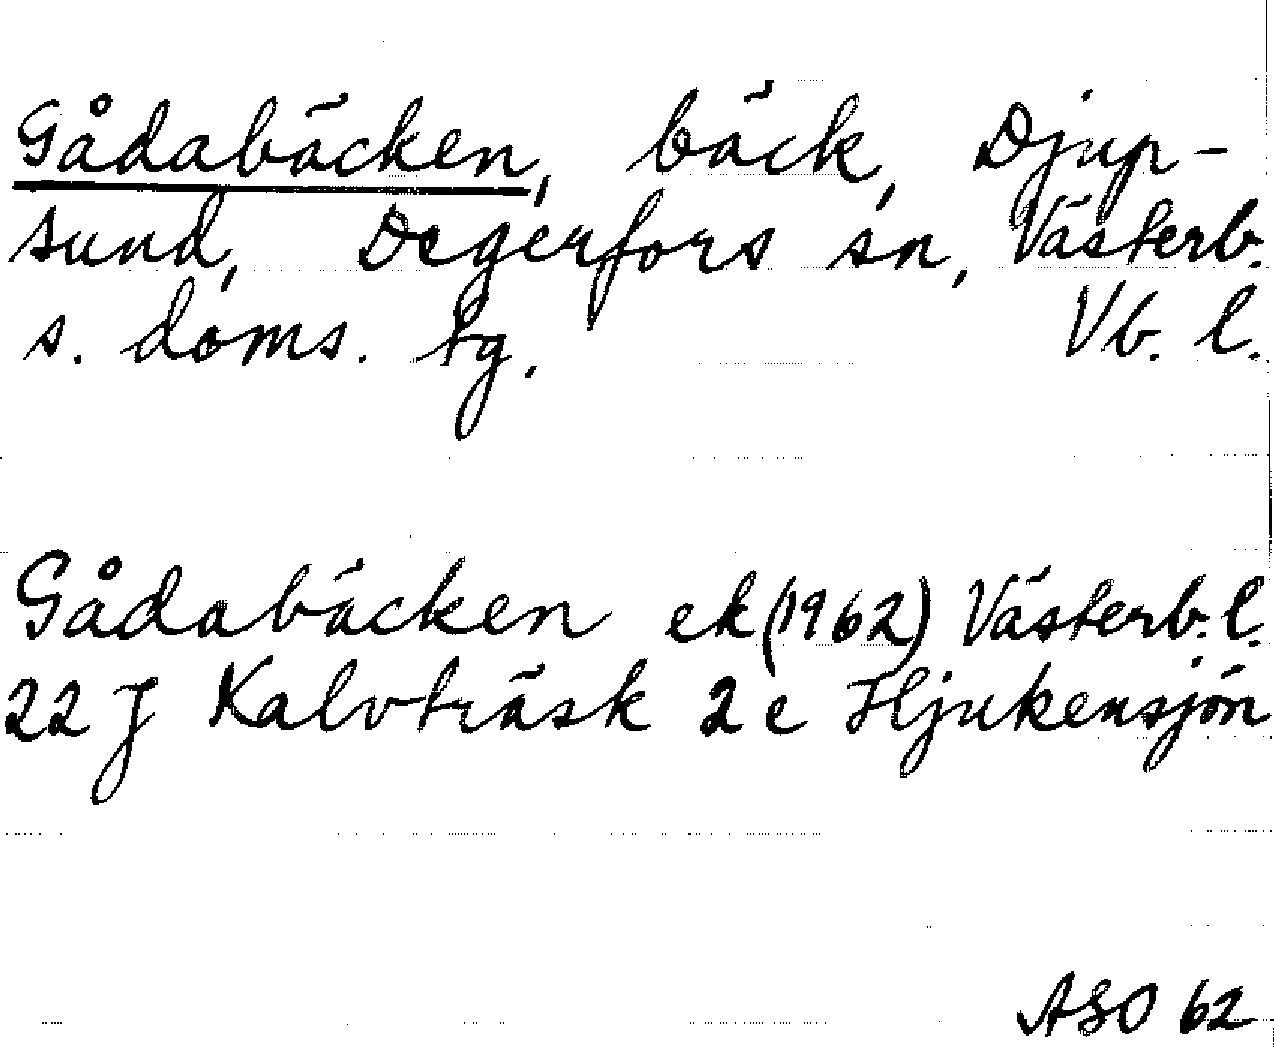 Gådabäcken, bäck, Djup-
sund, Degerfors sn, Västerb.
s. doms. tg. Vb. l.
Gådabäcken ek (1962) Västerb. l.
22 J Kalvträsk 2 e Hjukensjön
ASO 62